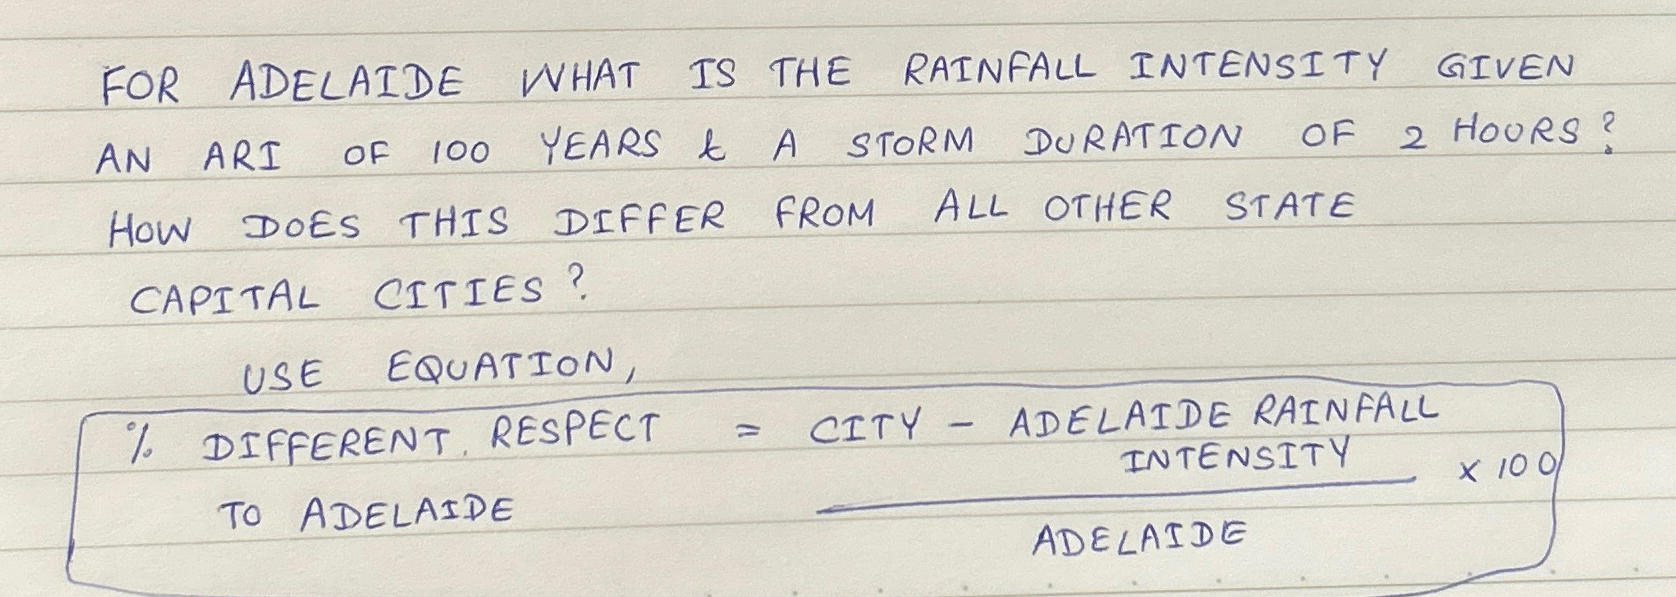 FOR ADELAIDE WHAT IS THE RAINFALL INTENSITY GIVEN
AN ARI OF 100 YEARS & A STORM DURATION OF 2 HOURS?
HOW DOES THIS DIFFER FROM ALL OTHER STATE
CAPITAL CITIES?
USE EQUATION,
% DIFFERENT. RESPECT = CITY - ADELAIDE RAINFALL
INTENSITY x 100
TO ADELAIDE
ADELAIDE